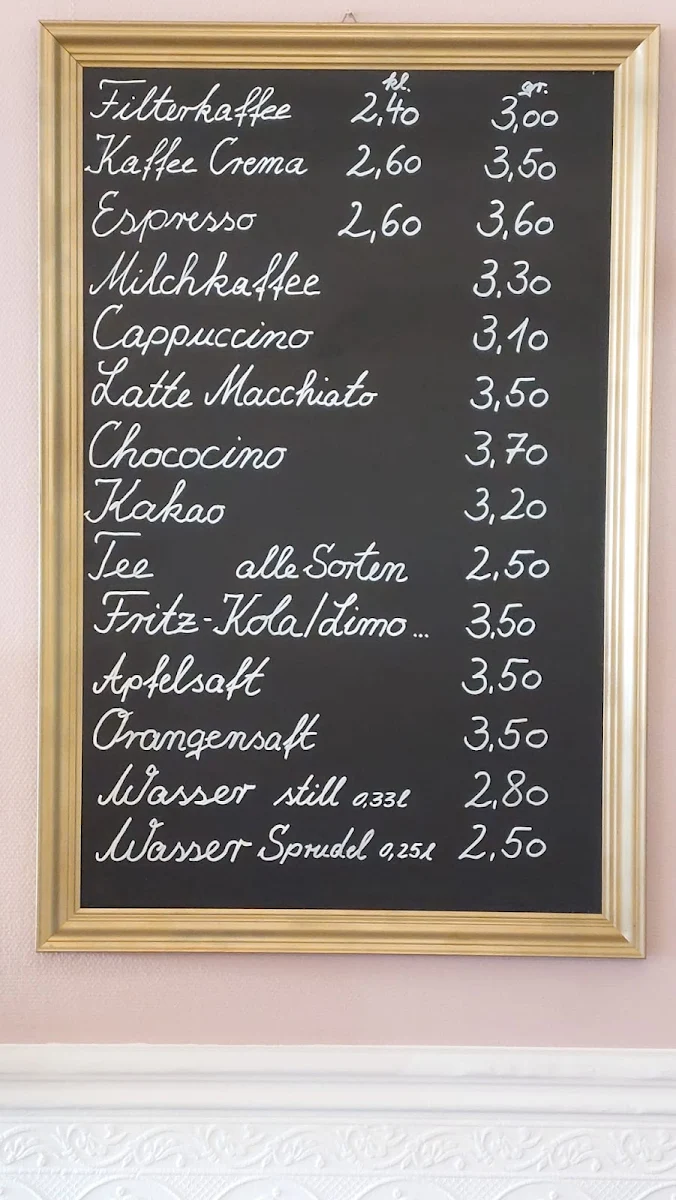 kl. gr.
Filterkaffee 2,40 3,00
Kaffee Crema 2,60 3,50
Espresso 2,60 3,60
Milchkaffee 3,30
Cappuccino 3,10
Latte Macchiato 3,50
Chococino 3,70
Kakao 3,20
Tee alle Sorten 2,50
Fritz-Kola/Limo... 3,50
Apfelsaft 3,50
Orangensaft 3,50
Wasser still 0,33l 2,80
Wasser Sprudel 0,25l 2,50